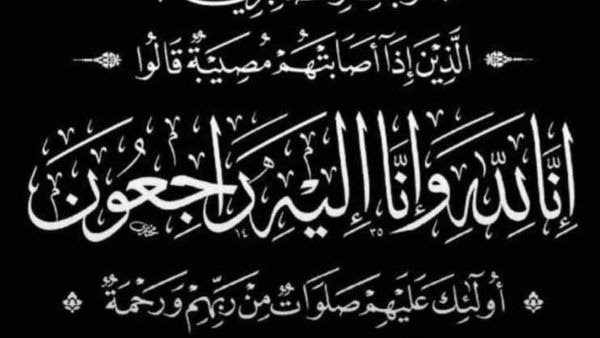 الَّذِيْنَ إِذَآ أَصَابَتْهُمْ مُصِيْبَةٌ قَالُوا
إِنَّا لِلّٰهِ وَإِنَّا إِلَيْهِ رَاجِعُونَ
١٤ ٣٥
أُولَٰئِكَ عَلَيْهِمْ صَلَوَاتٌ مِنْ رَبِّهِمْ وَرَحْمَةٌ